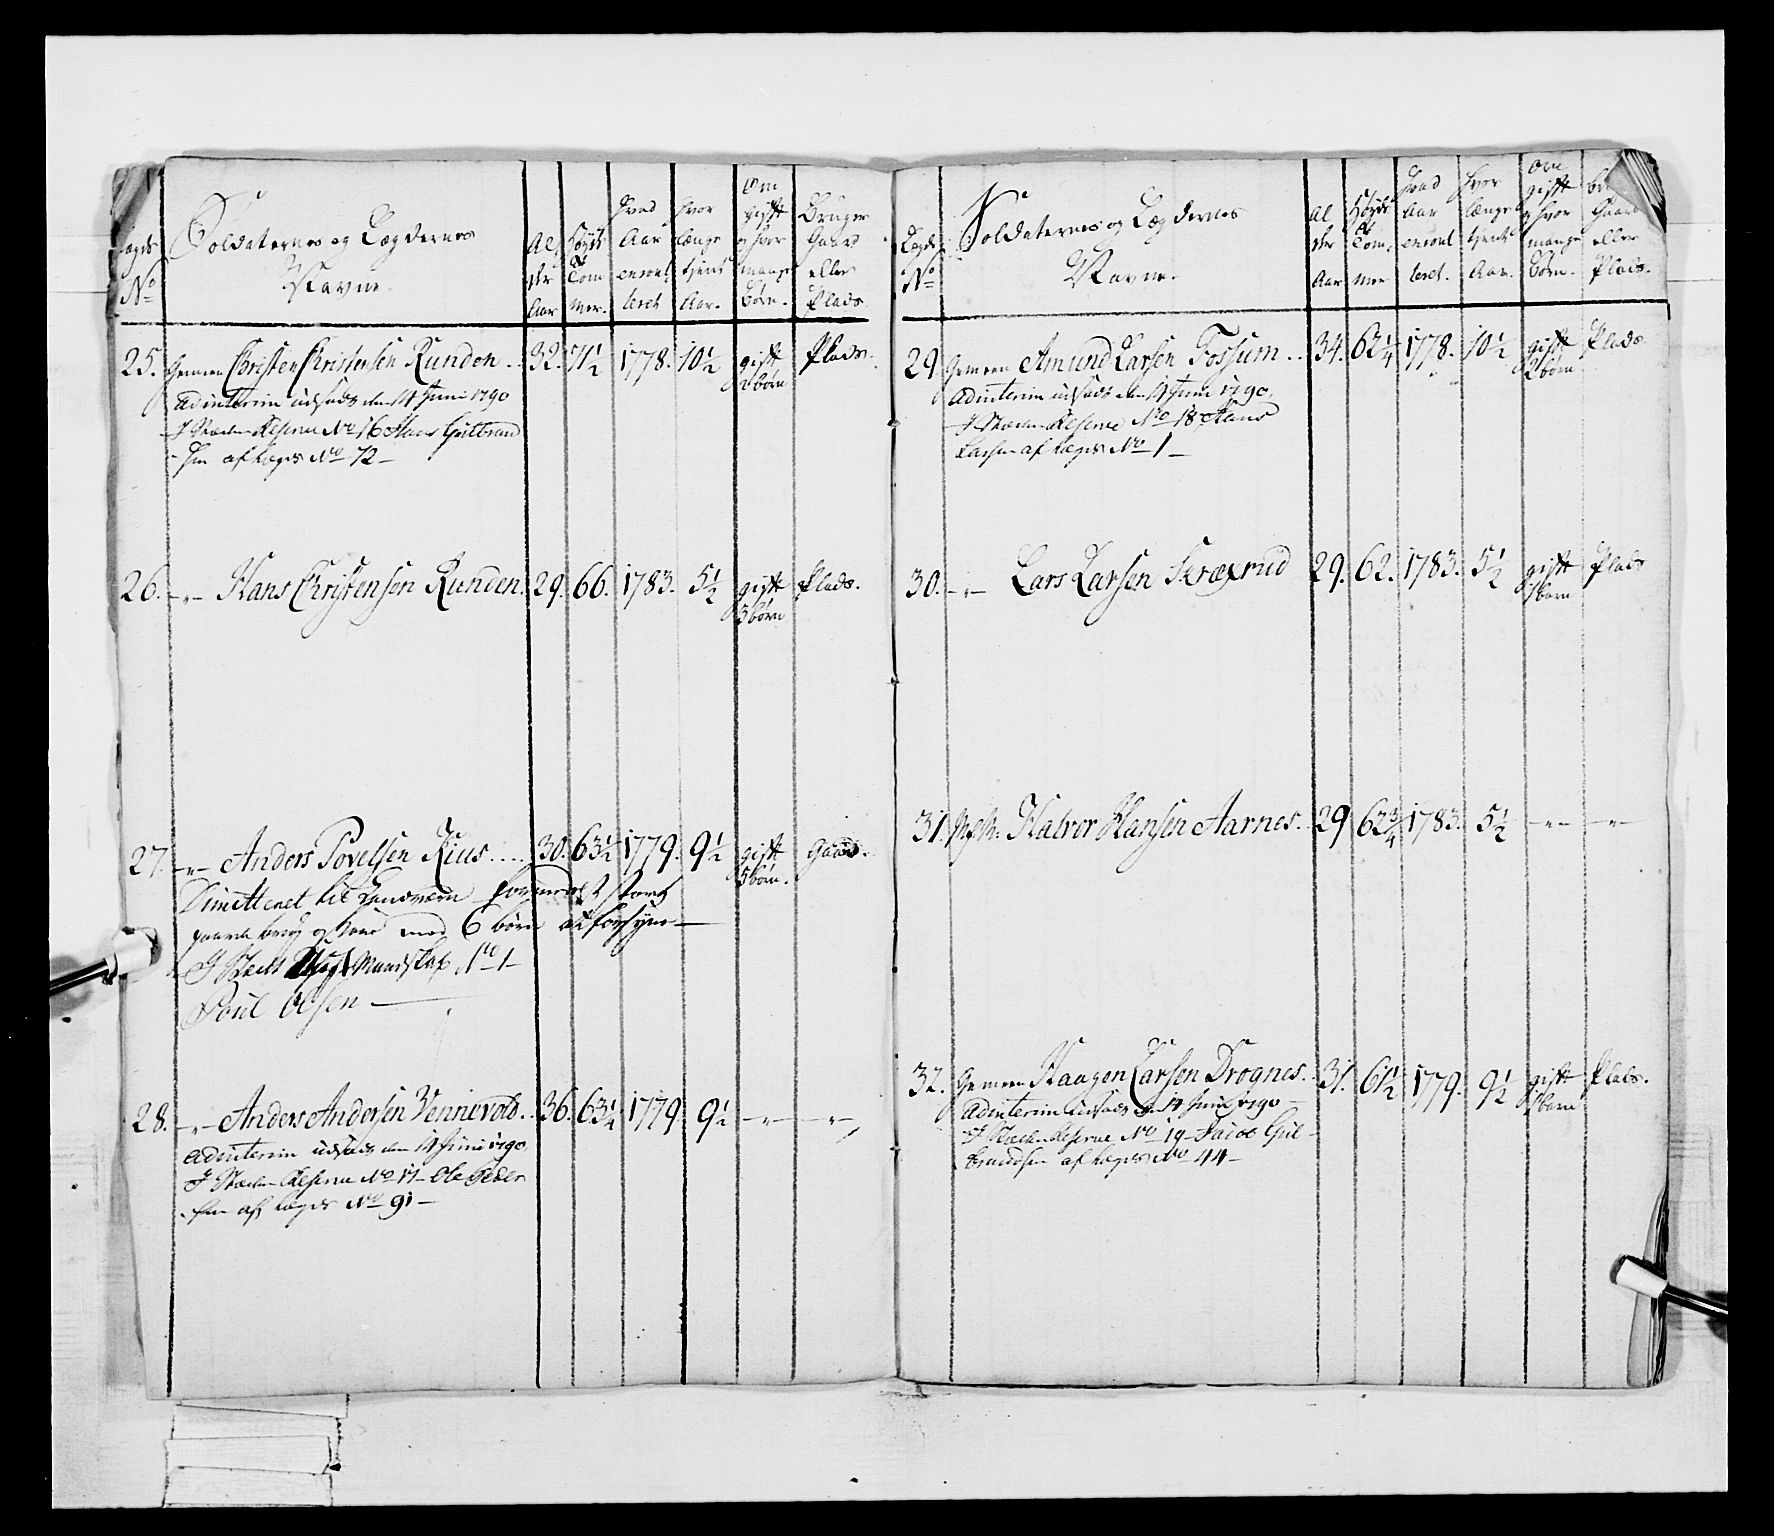 Lægds No
Soldaternes og Lægdernes Navne.
Al der Aar
Høyde Tom mer.
Hvad Aar enroul leret
Hvor længe tient Aar.
Om gifft og hvor mange Børn.
Bruger Gaard eller Plads
25. Gemeen Christen Christensen Runden . . 32. 71 1/2 1778. 10 1/2 gift 2 børn Plads.
ad interim udsadt den 14 Junii 1790
I Stæden Reserve No 16 Hans Gulbrand
sen af Lægds No 72 –
26. –〃– Hans Christensen Runden. 29. 66. 1783. 5 1/2 gift 3 børn Plads.
27. –〃– Anders Povelsen Riius . . . . 30. 63 1/2 1779. 9 1/2 gift 5 børn. Gaard.
Dimitteret til Landværn
gaard brug og have med 6 børn at forsyne –
I Stæden Mandskab No 1 –
Poul Olsen –
28. –〃– Anders Andersen Vennevold . . 36. 63 1/4 1779 9 1/2 –〃– –〃–
ad interim udsadt den 14 Junii 1790
I Stæden Reserve No 17 – Ole Peder
sen af Lægds No 91 –
Lægds No
Soldaternes og Lægdernes Navne.
Al der Aar
Høyde Tom mer
Hvad Aar enroul leret.
Hvor længe tient Aar.
Om gifft og hvor mange Børn.
Gaard eller Plads.
29 Gemeen Amund Larsen Fossum . . 34. 62 1/4 1778. 10 1/2 gift 2 børn Plads
ad interim udsadt den 14 Junii 1790.
I Stæden Reserve No 18 Hans
Larsen af Lægds No 1 –
30. –〃– Lars Larsen Skræxrud 29. 62. 1783. 5 1/2 gift 1 barn Plads
31. Halvor Hansen Aarnes. 29 62 3/4 1783. 5 1/2 –〃– –〃–
32. Gemeen Haagen Larsen Drognes. . 31. 61 1/2 1779. 9 1/2 gift 1 barn Plads.
ad interim udsadt d. 14 Junii 1790 –
I Stæden Reserve No 19 – Jacob Gul
brandsen af Lægds No 44 –